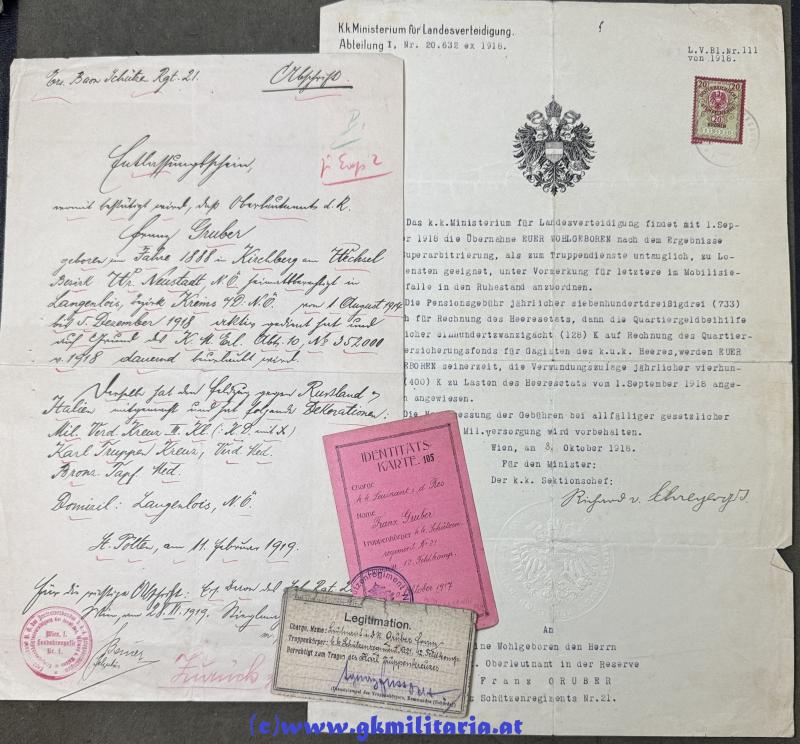 Ers. Baon Schütz. Rgt. 21.
Abschrift.
Entlassungsschein,
womit bestätigt wird, daß Oberleutnant d. R.
Franz Gruber
geboren im Jahre 1888 in Kirchberg am Wechsel
Bezirk Wr. Neustadt, N.Ö. heimatberechtigt in
Langenlois, bezirk Krems a/D. N.Ö. vom 1. August 1914
bis 5. Dezember 1918 aktiv gedient hat und
auf Grund des K.M. Erl. Abt. 10, No 352.000
v. 1918 dauernd beurlaubt wird.
Derselbe hat den Feldzug gegen Russland u.
Italien mitgemacht und hat folgende Dekorationen:
Mil. Verd. Kreuz III. Kl.
Karl Truppen Kreuz,
Bronz. Tapf. Med.
Domizil: Langenlois, N.Ö.
St. Pölten, am 11. Februar 1919.
Für die richtige Abschrift:
Wien, am 1919.
Wien, I.
Nr. 1
Zurück
K.k. Ministerium für Landesverteidigung.
Abteilung I, Nr. 20.632 ex 1918.
L.V.Bl.Nr.111
von 1918.
20 20
Das k.k.Ministerium für Landesverteidigung findet mit 1.Sep-
er 1918 die Übernahme EUER WOHLGEBOREN nach dem Ergebnisse
uperarbitrierung, als zum Truppendienste untauglich, zu Lo-
ensten geeignet, unter Vormerkung für letztere im Mobilisie-
falle in den Ruhestand anzuordnen.
Die Pensionsgebühr jährlicher siebenhundertdreißigdrei (733)
h für Rechnung des Heeresetats, dann die Quartiergeldbeihilfe
licher einhundertzwanzigacht (128) K auf Rechnung des Quartier-
ersicherungsfonds für Gagisten des k.u.k. Heeres,werden EUER
EBOREN seinerzeit, die Verwundungszulage jährlicher vierhun-
(400) K zu Lasten des Heeresetats vom 1.September 1918 ange-
n angewiesen.
Die essung der Gebühren bei allfälliger gesetzlicher
Mil.versorgung wird vorbehalten.
Wien, am 8. Oktober 1918.
Für den Minister:
Der k.k. Sektionschef:
Richard v.
An
ine Wohlgeboren den Herrn
. Oberleutnant in der Reserve
Franz GRUBER
Schützenregiments Nr.21.
IDENTITÄTS-
KARTE. 105
Charge
k.k. Leutnant i. d. Res
Name
Franz Gruber
Truppenkörper k.k. Schützen
regiment Nr 21
12. Feldkomp.
Oktober 1917
Legitimation.
Charge, Name: Leutnant i. d. R. Gruber Franz
Truppenkörper: k.k. Schützenregiment Nr. 21, 12. Feldkomp.
Berechtigt zum Tragen des Karl Truppenkreuzes
(c)www.gkmilitaria.at